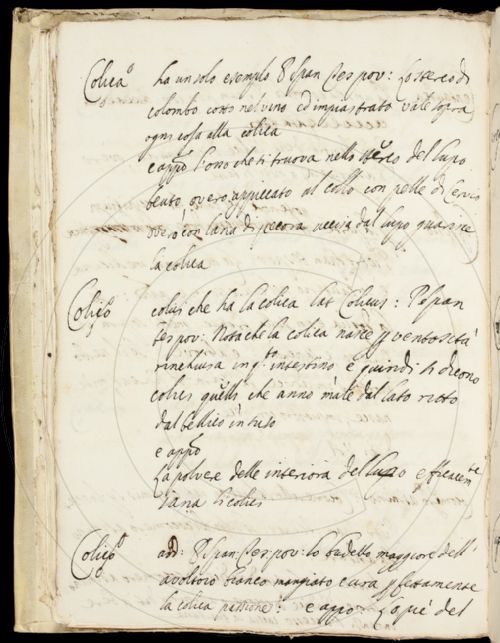 Colica ha un solo esempio P Ispan Tes pov: Lo sterco di
colombo cotto nel vino ed impiastrato vale sopra
ogni cosa alla colica
e appo l'osso che si truova nello sterco del lupo
beuto, overo appiccato al collo con pelle di Cervio
overo con lana di pecora uccisa dal lupo guarisce
la colica
Colico colui che ha la colica lat Colicus: P Ispan
Tes pov: Nota che la colica nasce p ventosità
rinchiusa in qto intestino e quindi si dicono
colici quelli che anno male dal lato ritto
dal bellico in suso
e appo
La polvere delle interiora del lupo efficacemte
sana li colici
Colico add: P Ispan Tes pov: lo budello maggiore dell'
avoltoio bianco mangiato cura pfettamente
la colica passione: e appo Lo piè del